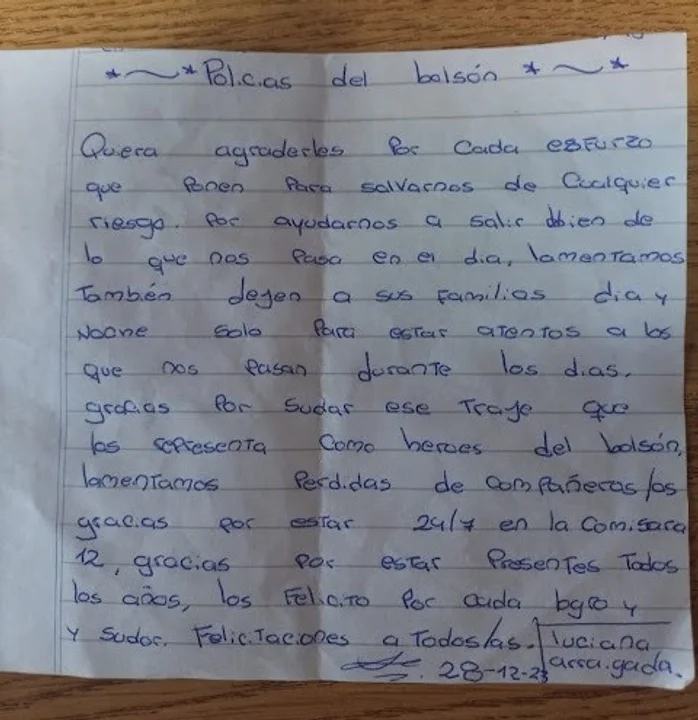 *~*Policias del bolsón *~*
Quiera agraderles Por Cada esfurzo
que Ponen Para salvarnos de Cualquier
riesgo. Por ayudarnos a salir bien de
lo que nos Pasa en el dia, lamentamos
También dejen a sus Familias dia y
Noche solo Para estar atentos a los
que nos Pasan durante los dias.
gracias Por Sudar ese Traje que
los representa Como heroes del bolsón,
lamentamos Perdidas de Compañeros/as
gracias por estar 24/7 en la Comisara
12, gracias por estar Presentes Todos
los años, los Felicito Por cada y
y Sudor. Felicitaciones a Todos/as. luciana
28-12-23 arra.gada.